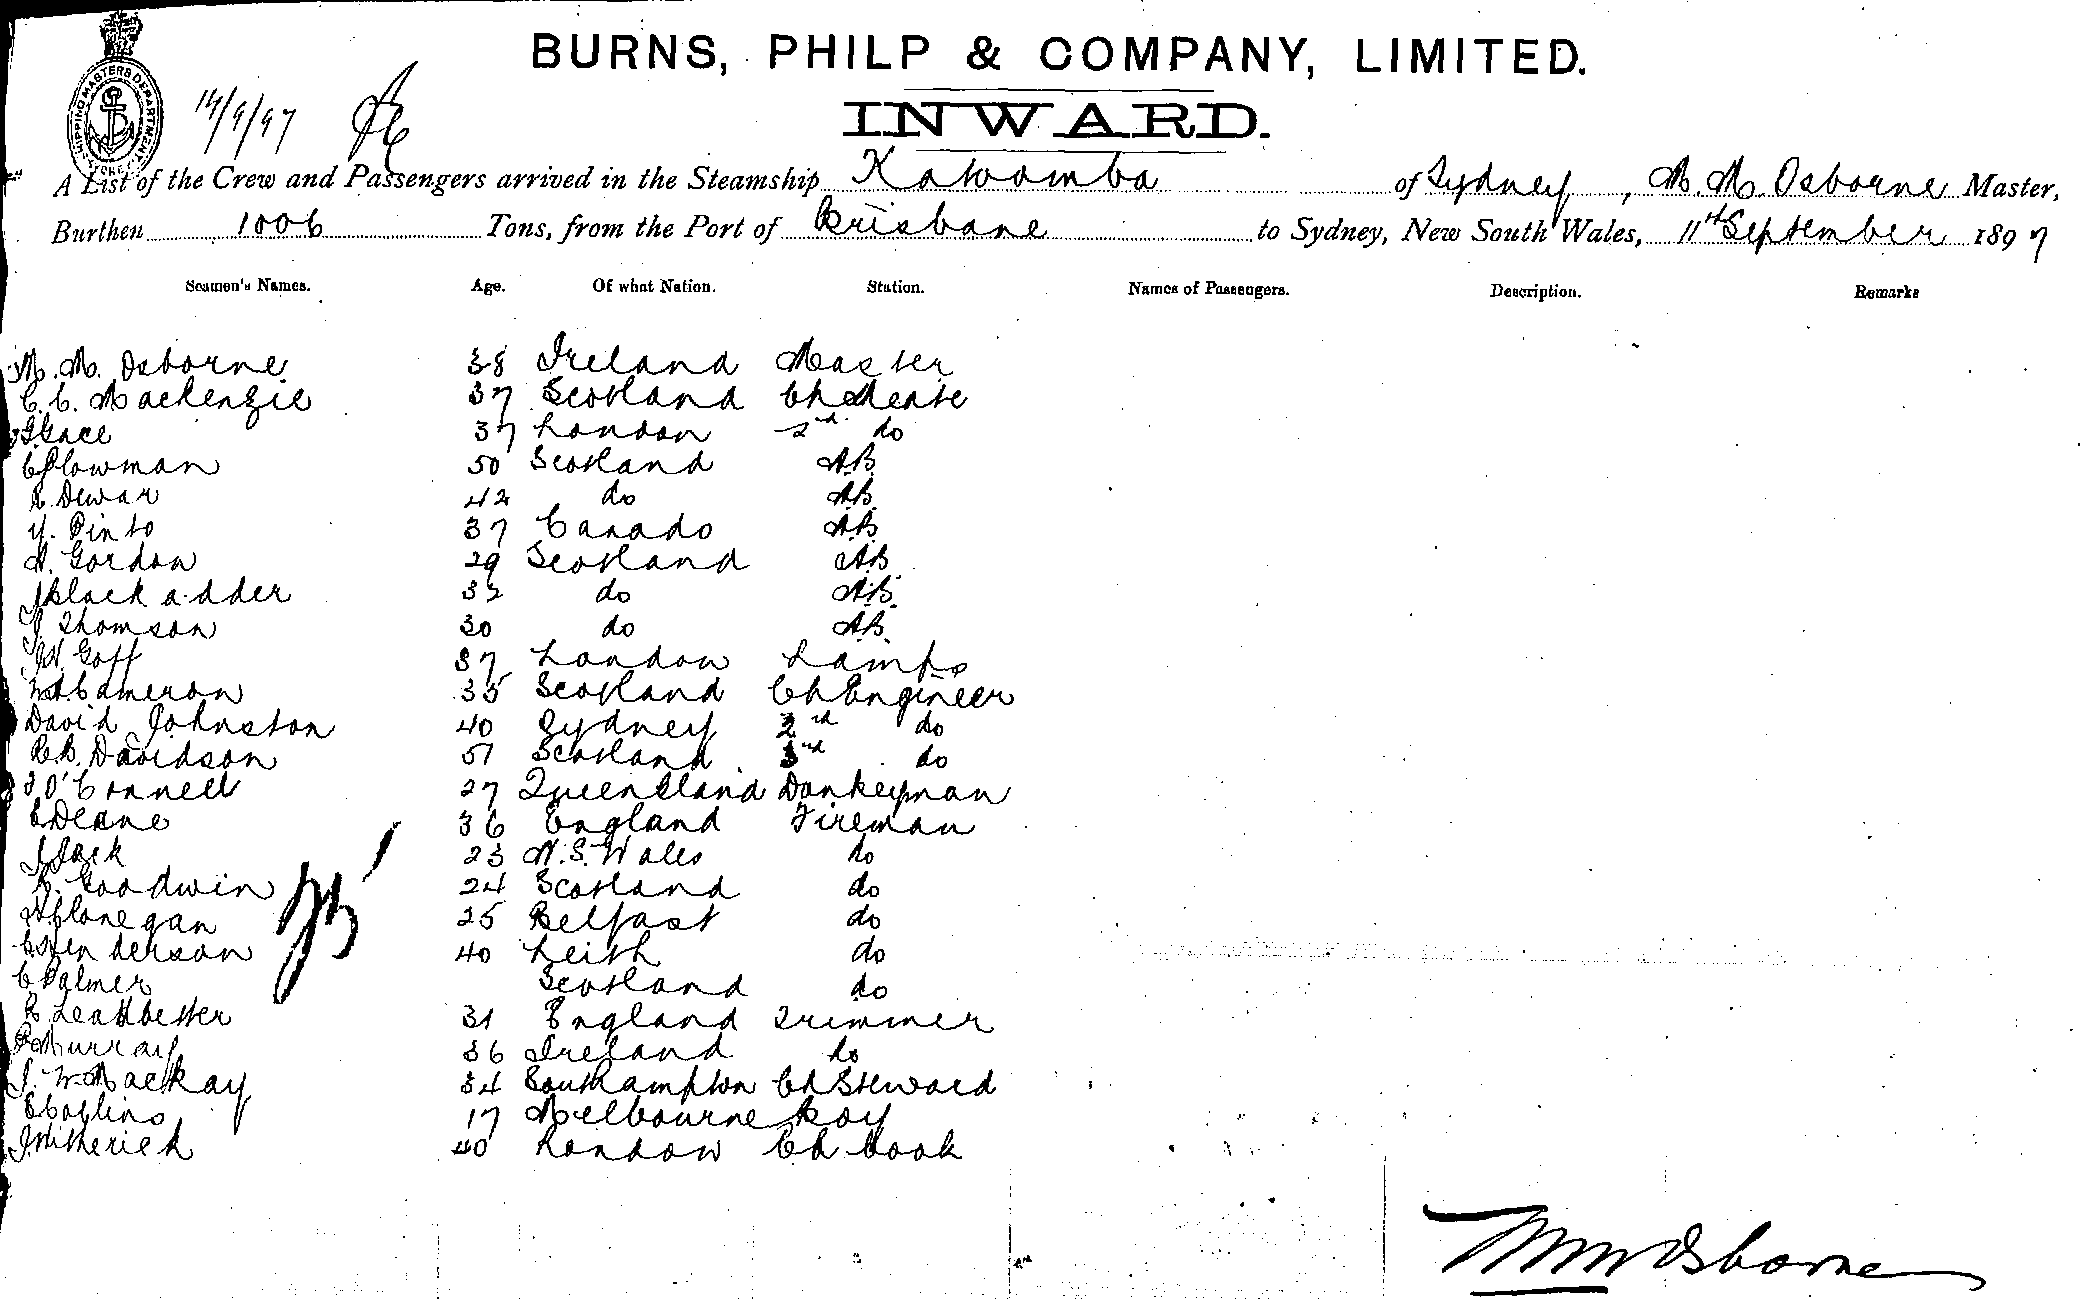 BURNS, PHILP & COMPANY, LIMITED.
INWARD.
SHIPPING MASTERS DEPARTMENT
14/9/97
A List of the Crew and Passengers arrived in the Steamship Katoomba of Sydney, M. M. Osborne Master,
Burthen 1006 Tons, from the Port of Brisbane to Sydney, New South Wales, 11th September 1897
Seamen's Names. Age. Of what Nation. Station. Names of Passengers. Description. Remarks
M. M. Osborne 38 Ireland Master
C. C. Mackenzie 37 Scotland Ch Meate
Grace 37 London 2nd do
C Plowman 50 Scotland A.B.
Dewar 42 do A.B.
Y. Pinto 37 Canado A.B.
A. Gordon 29 Scotland A.B.
J Blackadder 32 do A.B.
J Thomson 30 do A.B.
W. Goff 37 London Lamps
Cameron 35 Scotland Ch Engineer
David Johnston 40 Sydney 2nd do
R. B. Davidson 51 Scotland 3rd do
J O'Connell 27 Queensland Donkeyman
C Deane 36 England Fireman
J Jack 23 N. S. Wales do
R. Goodwin 24 Scotland do
Flonegan 25 Belfast do
C Henderson 40 Leith do
C Palmer Scotland do
E Leadbetter 31 England Trimmer
P Murray 36 Ireland do
J. W. Mackay 34 Southampton Ch Steward
C Collins 17 Melbourne Boy
J. Witherich 40 London Ch Cook
M M Osborne